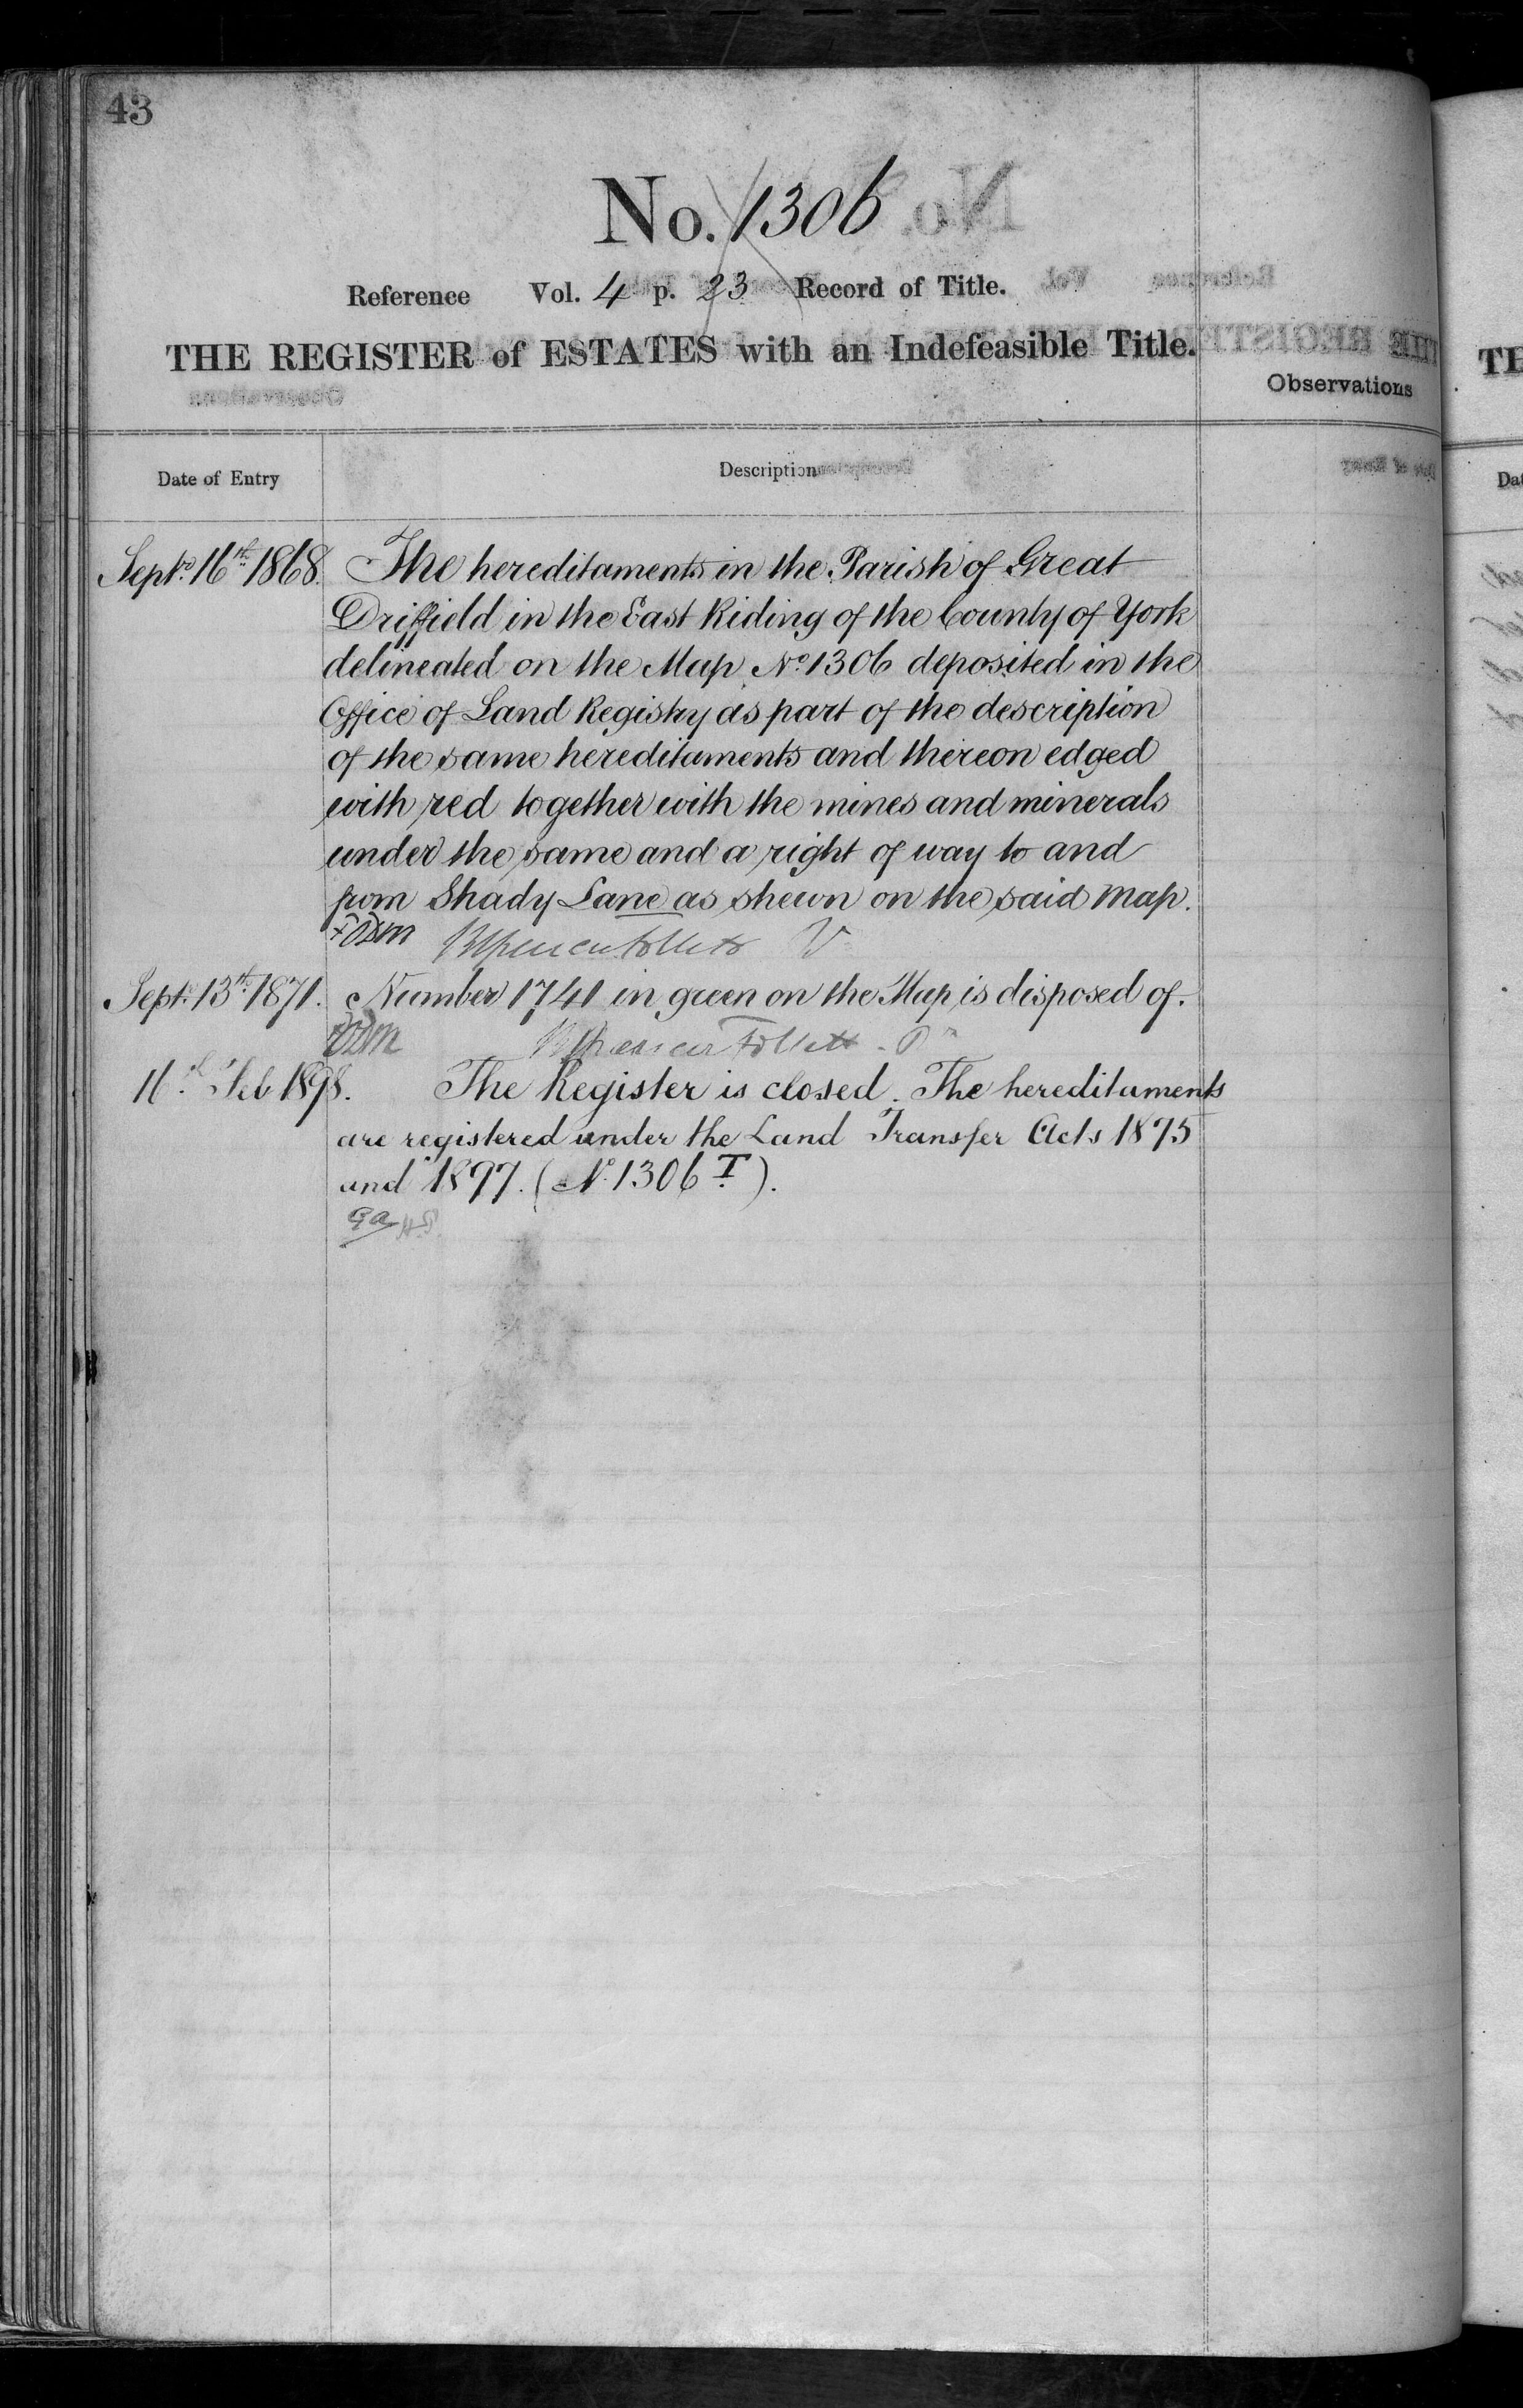 43
No. 1306
Reference Vol. 4 p. 23 Record of Title.
THE REGISTER of ESTATES with an Indefeasible Title.
Observations
Date of Entry Description
Septr. 16th 1868. The hereditaments in the Parish of Great
Driffield in the East Riding of the County of York
delineated on the Map No. 1306 deposited in the
Office of Land Registry as part of the description
of the same hereditaments and thereon edged
with red together with the mines and minerals
under the same and a right of way to and
from Shady Lane as shewn on the said Map.
Follett
Sept. 13th 1871. Number 1741 in green on the Map is disposed of.
Follett
Feb 1898. The Register is closed. The hereditaments
are registered under the Land Transfer Acts 1875
and 1897. (No. 1306 T.).